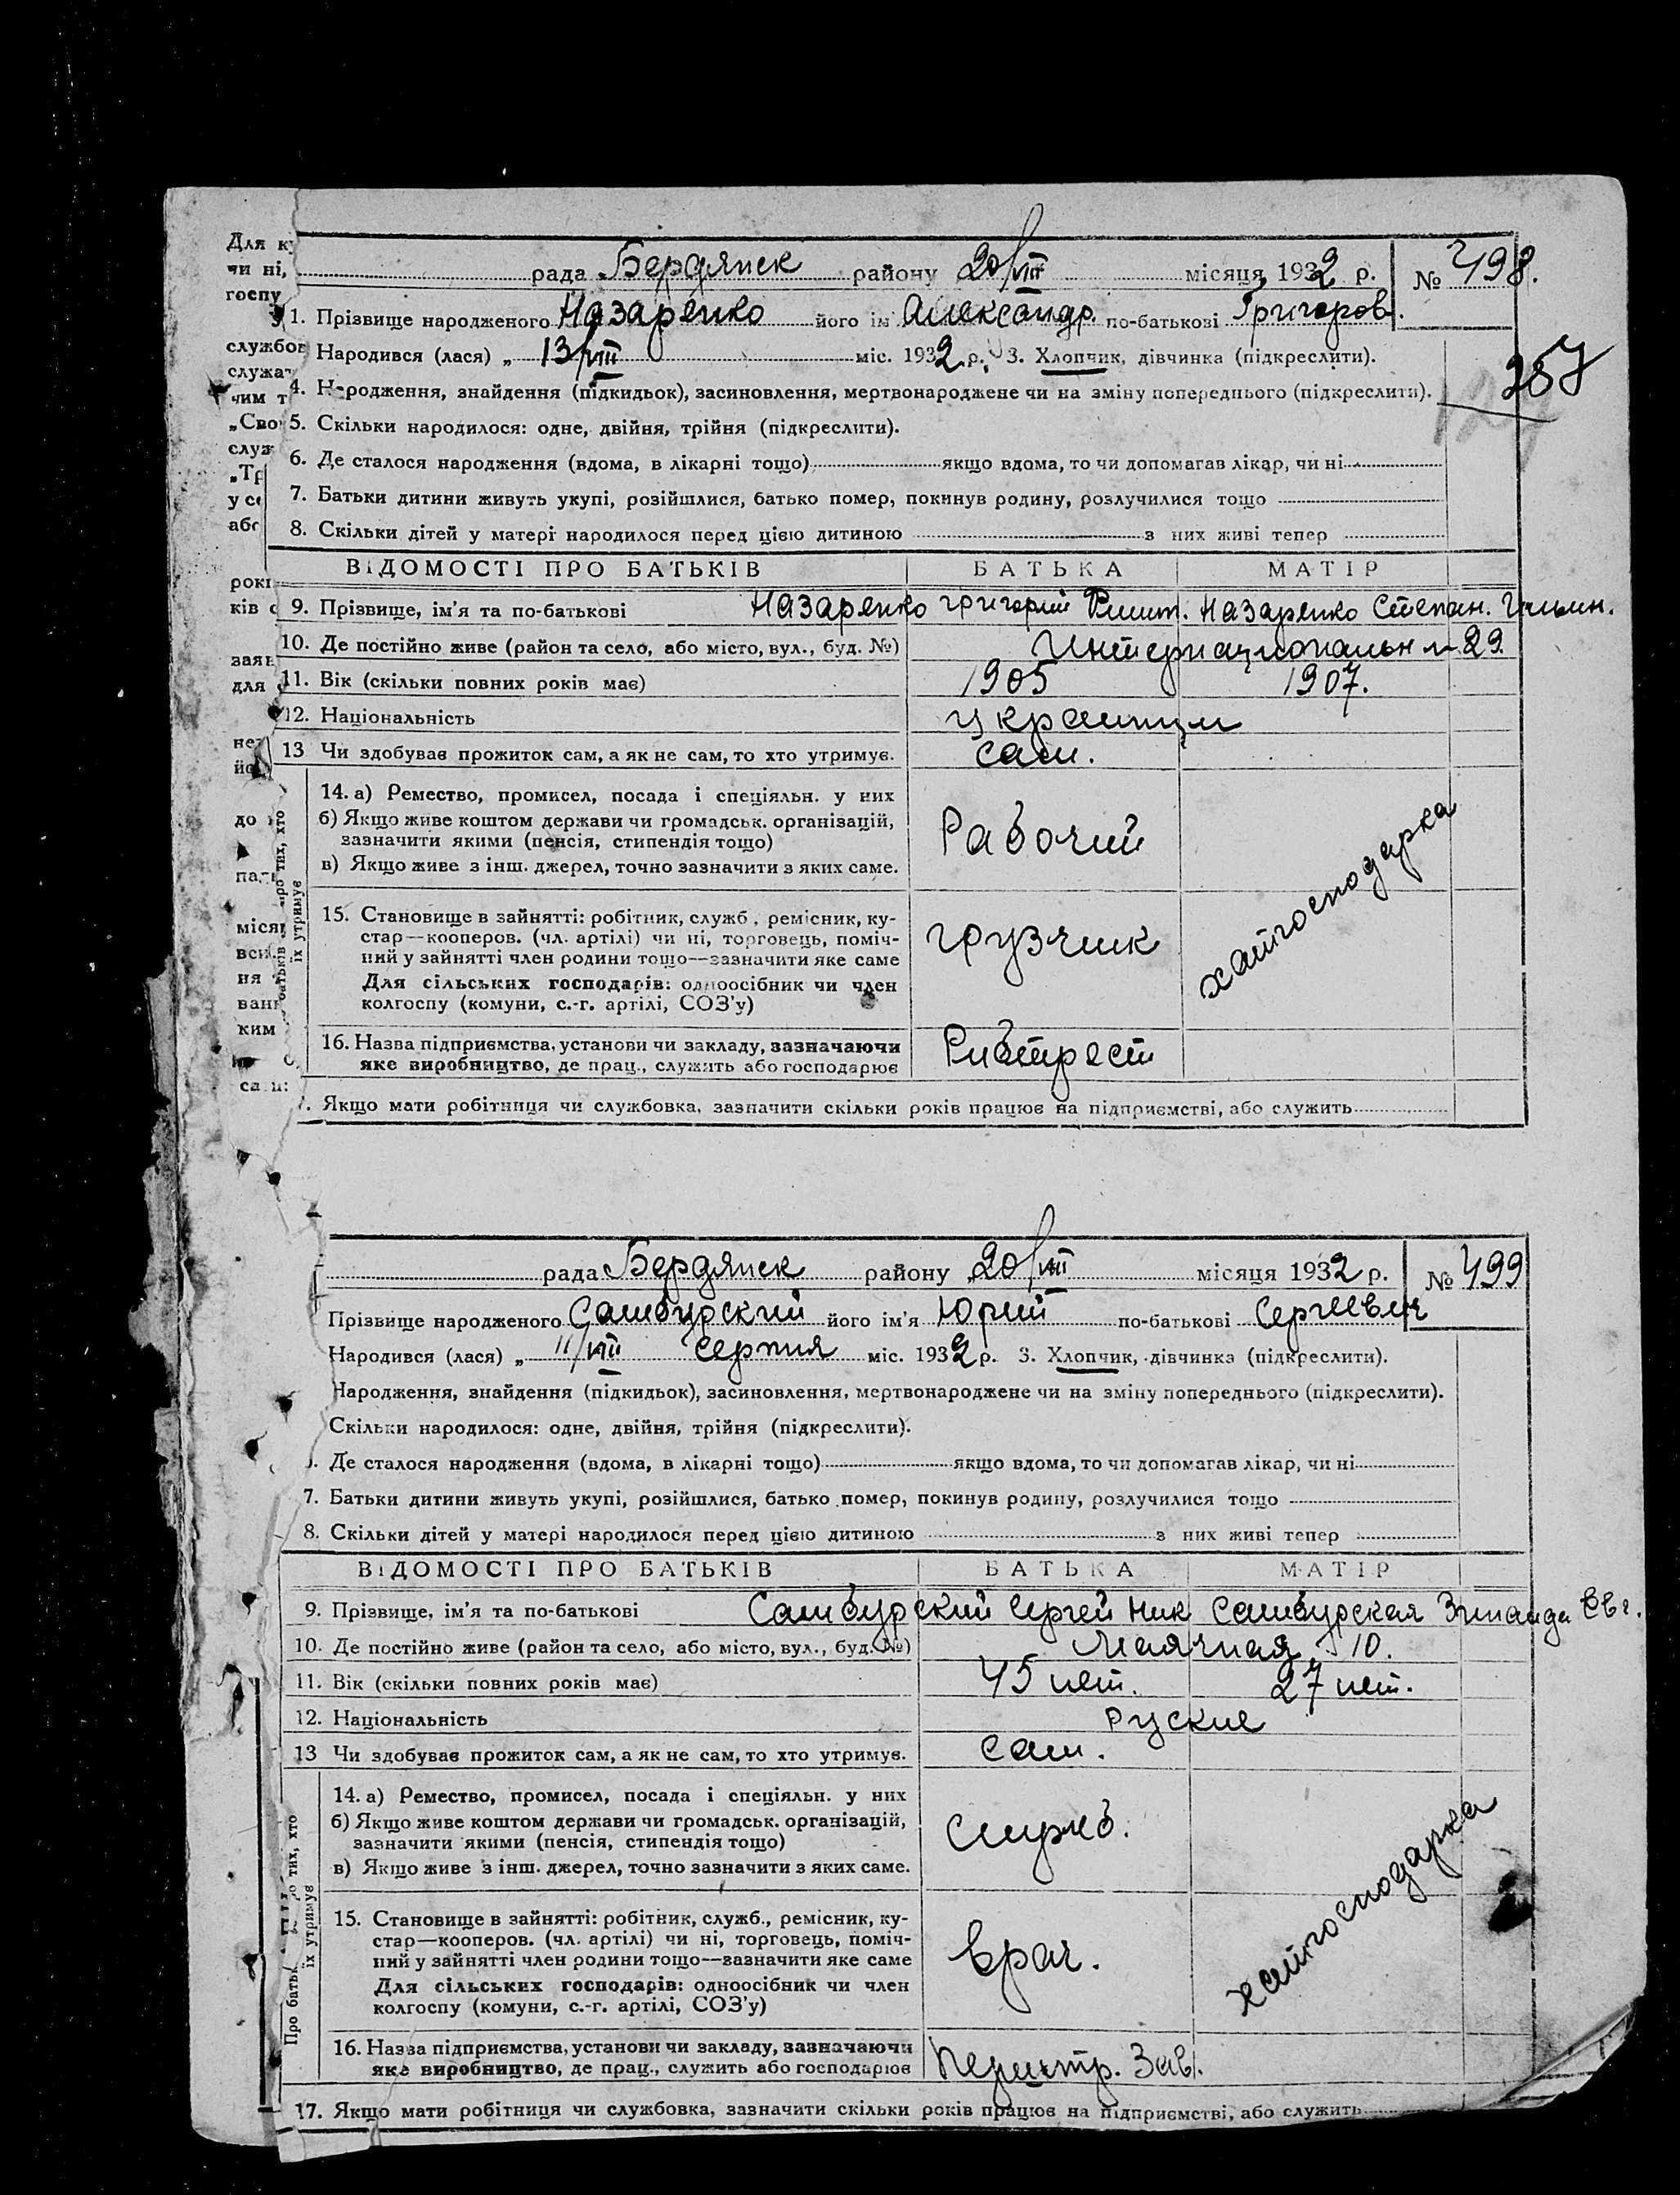 рада Бердянск району 20/VIII місяця 1932 р. № 498.
1. Прізвище народженого Назаренко його ім' Александр. по-батькові Григоров.
Народився (лася) „ 13/VIII міс. 1932 р. 3. Хлопчик, дівчинка (підкреслити).
257
4. Народження, знайдення (підкидьок), засиновлення, мертвонароджене чи на зміну попереднього (підкреслити).
5. Скільки народилося: одне, двійня, трійня (підкреслити).
6. Де сталося народження (вдома, в лікарні тощо) якщо вдома, то чи допомагав лікар, чи ні
7. Батьки дитини живуть укупі, розійшлися, батько помер, покинув родину, розлучилися тощо
8. Скільки дітей у матері народилося перед цією дитиною з них живі тепер
ВІДОМОСТІ ПРО БАТЬКІВ БАТЬКА МАТІР
9. Прізвище, ім'я та по-батькові Назаренко Григорий Назаренко Степан.
10. Де постійно живе (район та село, або місто, вул., буд. №) Интернациональн 29.
11. Вік (скільки повних років має) 1905 1907.
12. Національність украинци
13 Чи здобував прожиток сам, а як не сам, то хто утримує. сам.
14. а) Ремество, промисел, посада і спеціяльн. у них
б) Якщо живе коштом держави чи громадськ. організацій,
зазначити якими (пенсія, стипендія тощо)
в) Якщо живе з інш. джерел, точно зазначити з яких саме.
Рабочий
хатгосподарка
15. Становище в зайнятті: робітник, служб., ремісник, ку-
стар—кооперов. (чл. артілі) чи ні, торговець, поміч-
ний у зайнятті член родини тощо—зазначити яке саме
Для сільських господарів: одноосібник чи член
колгоспу (комуни, с.-г. артілі, СОЗ'у)
грузчик
16. Назва підприємства, установи чи закладу, зазначаючи
яке виробництво, де прац., служить або господарює
Рибтрест
Якщо мати робітниця чи службовка, зазначити скільки років працює на підприємстві, або служить
рада Бердянск району 20/VIII місяця 1932 р. № 499
Прізвище народженого Самбурский його ім'я Юрий по-батькові Сергеевич
Народився (лася) „ 11/VIII серпня міс. 1932 р. 3. Хлопчик, дівчинка (підкреслити).
Народження, знайдення (підкидьок), засиновлення, мертвонароджене чи на зміну попереднього (підкреслити).
Скільки народилося: одне, двійня, трійня (підкреслити).
Де сталося народження (вдома, в лікарні тощо) якщо вдома, то чи допомагав лікар, чи ні
7. Батьки дитини живуть укупі, розійшлися, батько помер, покинув родину, розлучилися тощо
8. Скільки дітей у матері народилося перед цією дитиною з них живі тепер
ВІДОМОСТІ ПРО БАТЬКІВ БАТЬКА МАТІР
9. Прізвище, ім'я та по-батькові Самбурский Сергей Ник Самбурская Зинаида Евг.
10. Де постійно живе (район та село, або місто, вул., буд. №) Маячная, 10.
11. Вік (скільки повних років має) 45 лет. 27 лет.
12. Національність Руские
13 Чи здобував прожиток сам, а як не сам, то хто утримує. сам.
14. а) Ремество, промисел, посада і спеціяльн. у них
б) Якщо живе коштом держави чи громадськ. організацій,
зазначити якими (пенсія, стипендія тощо)
в) Якщо живе з інш. джерел, точно зазначити з яких саме.
Служб.
хатгосподарка
Про батьк про тих, хто
їх утримує
15. Становище в зайнятті: робітник, служб., ремісник, ку-
стар—кооперов. (чл. артілі) чи ні, торговець, поміч-
ний у зайнятті член родини тощо—зазначити яке саме
Для сільських господарів: одноосібник чи член
колгоспу (комуни, с.-г. артілі, СОЗ'у)
Врач.
16. Назва підприємства, установи чи закладу, зазначаючи
яке виробництво, де прац., служить або господарює
Зав.
17. Якщо мати робітниця чи службовка, зазначити скільки років працює на підприємстві, або служить